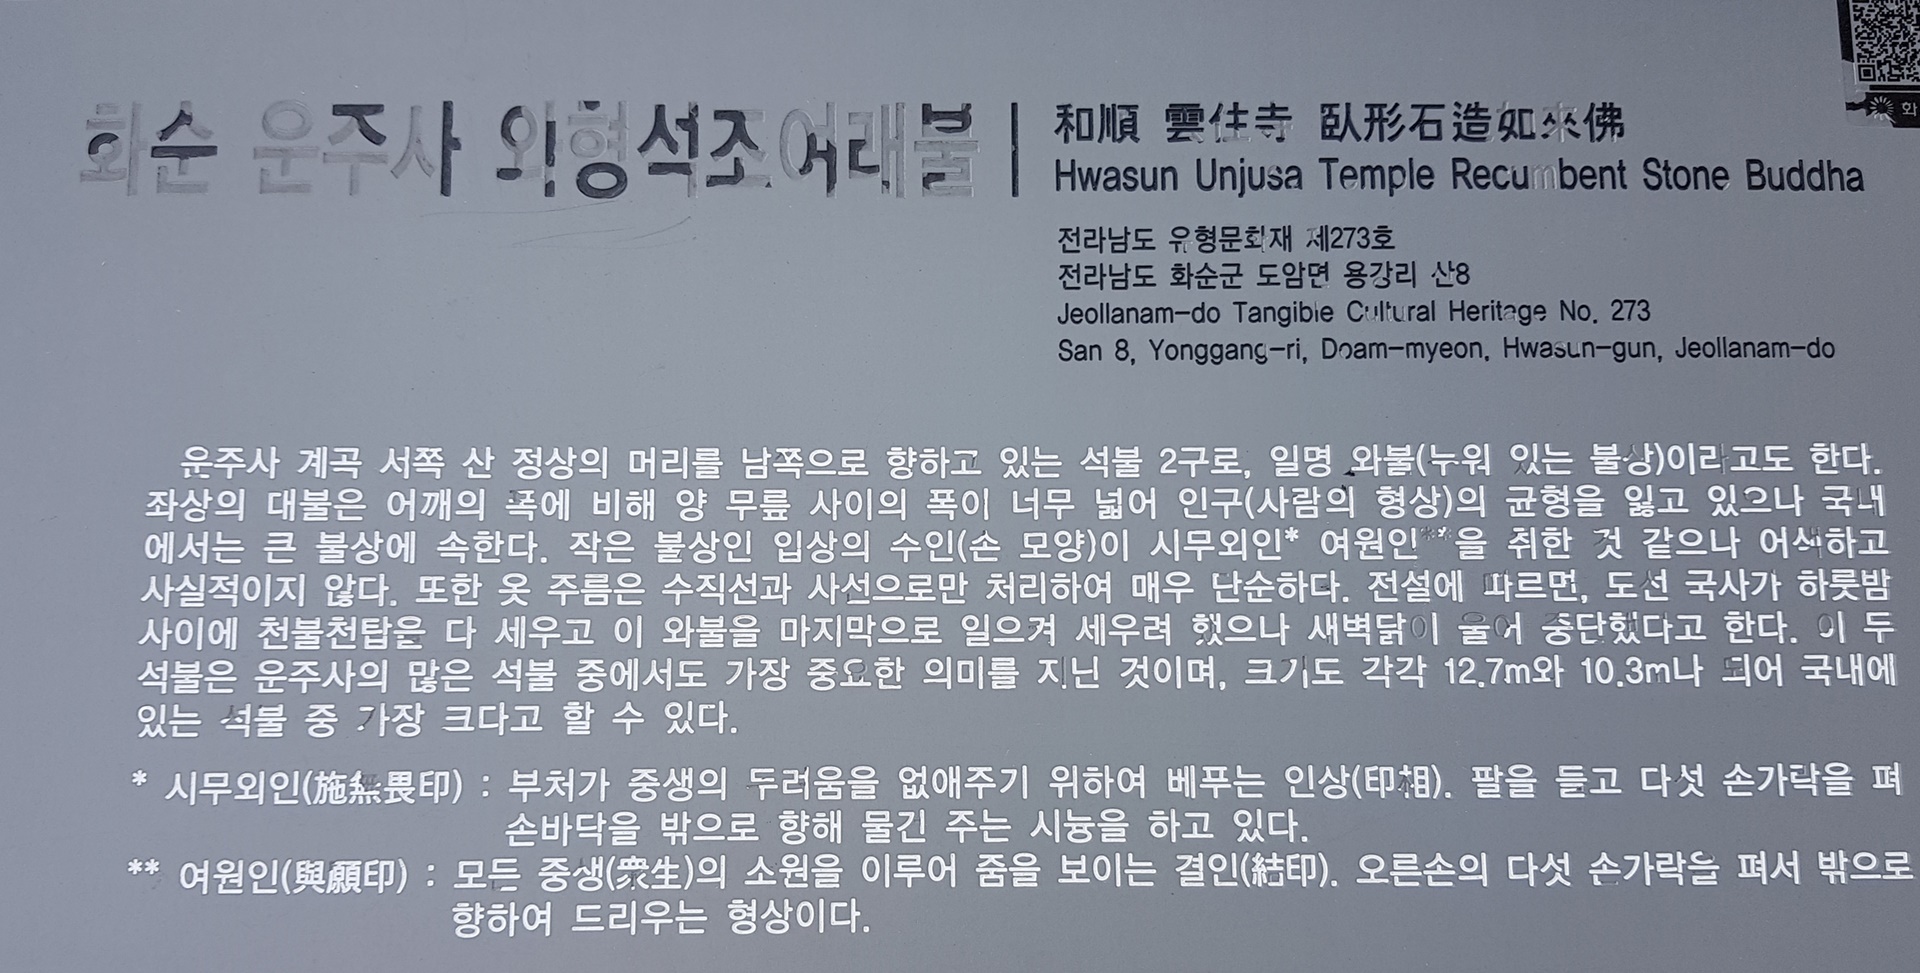 화순 운주사 와형석조여래불
和順 雲住寺 臥形石造如來佛
Hwasun Unjusa Temple Recumbent Stone Buddha
전라남도 유형문화재 제273호
전라남도 화순군 도암면 용강리 산8
Jeollanam-do Tangible Cultural Heritage No. 273
San 8, Yonggang-ri, Doam-myeon, Hwasun-gun, Jeollanam-do
운주사 계곡 서쪽 산 정상의 머리를 남쪽으로 향하고 있는 석불 2구로, 일명 와불(누워 있는 불상)이라고도 한다.
좌상의 대불은 어깨의 폭에 비해 양 무릎 사이의 폭이 너무 넓어 인구(사람의 형상)의 균형을 잃고 있으나 국내
에서는 큰 불상에 속한다. 작은 불상인 입상의 수인(손 모양)이 시무외인* 여원인**을 취한 것 같으나 어색하고
사실적이지 않다. 또한 옷 주름은 수직선과 사선으로만 처리하여 매우 단순하다. 전설에 따르면, 도선 국사가 하룻밤
사이에 천불천탑을 다 세우고 이 와불을 마지막으로 일으켜 세우려 했으나 새벽닭이 울어 중단했다고 한다. 이 두
석불은 운주사의 많은 석불 중에서도 가장 중요한 의미를 지닌 것이며, 크기도 각각 12.7m와 10.3m나 되어 국내에
있는 석불 중 가장 크다고 할 수 있다.
* 시무외인(施無畏印) : 부처가 중생의 두려움을 없애주기 위하여 베푸는 인상(印相). 팔을 들고 다섯 손가락을 펴
손바닥을 밖으로 향해 물긴 주는 시늉을 하고 있다.
** 여원인(與願印) : 모든 중생(衆生)의 소원을 이루어 줌을 보이는 결인(結印). 오른손의 다섯 손가락을 펴서 밖으로
향하여 드리우는 형상이다.
화